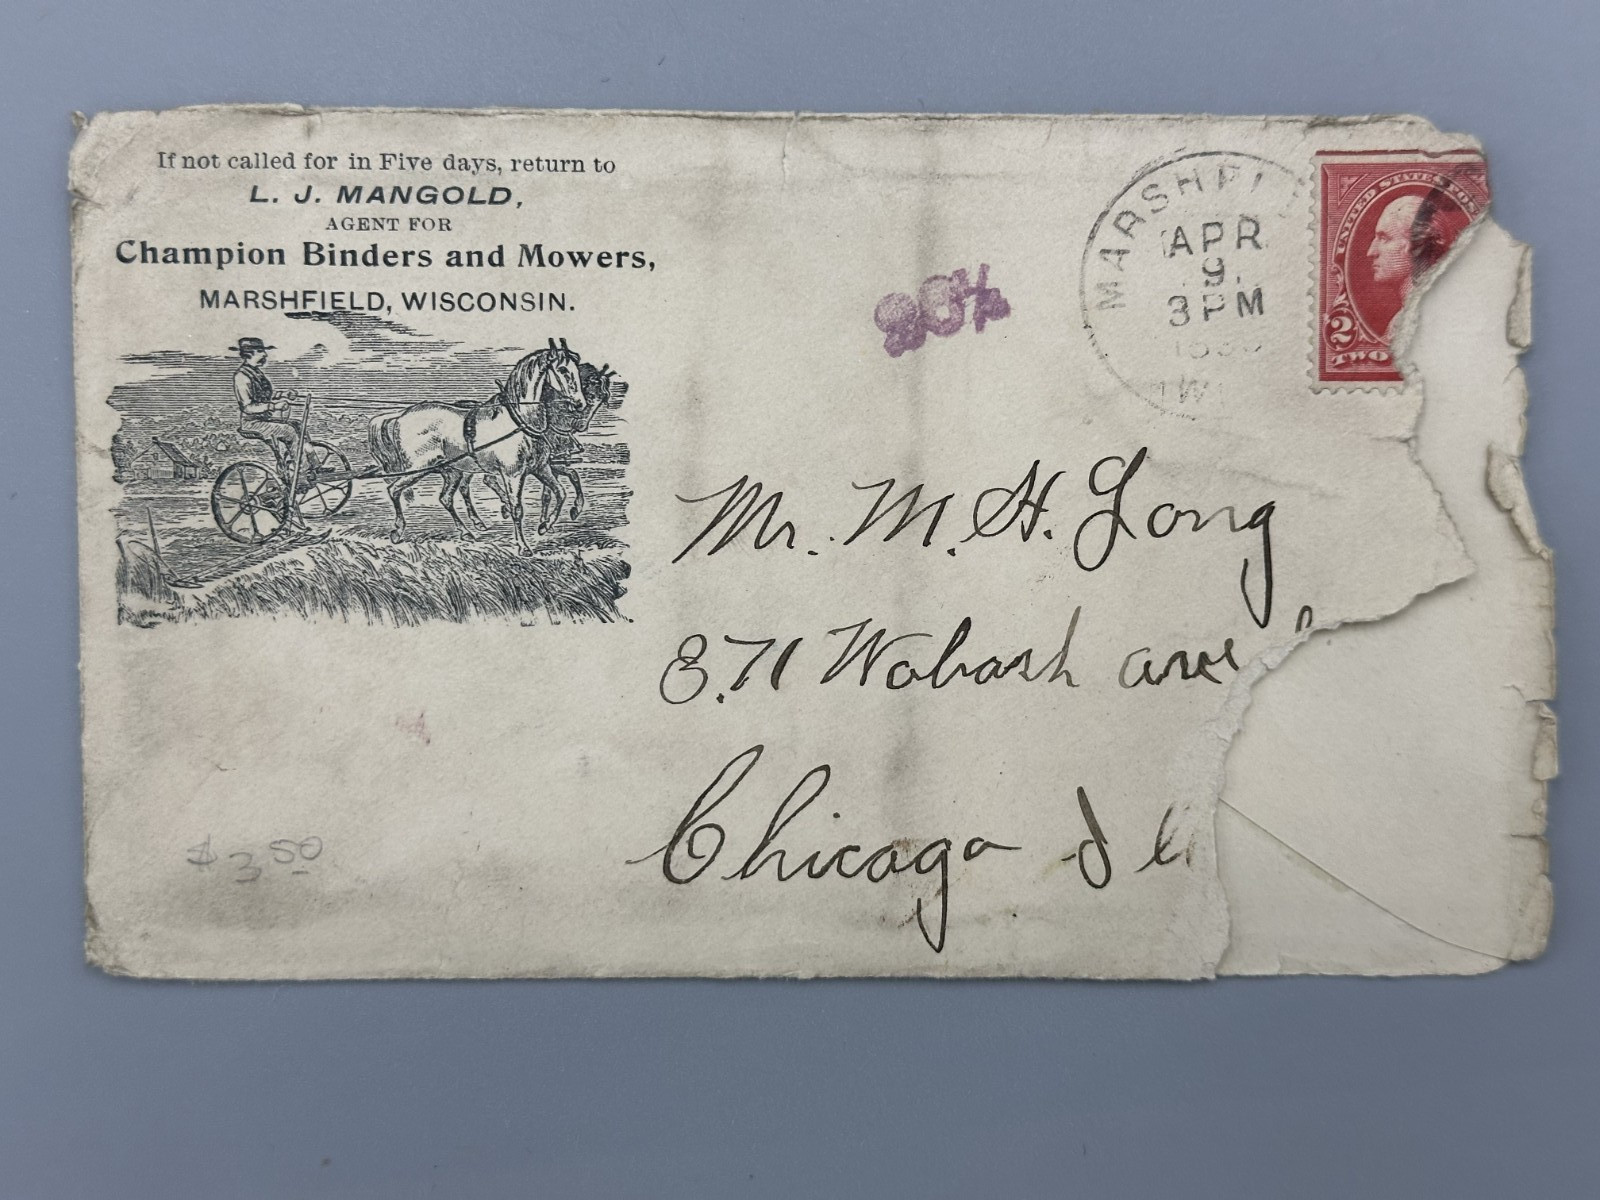 If not called for in Five days, return to
L. J. MANGOLD,
AGENT FOR
Champion Binders and Mowers,
MARSHFIELD, WISCONSIN.
MARSHFI
APR
9.
3 PM
UNITED STATES POS
2
TWO
Mr. M. H. Long
871 Wabash ave
Chicago Ill
$3.50